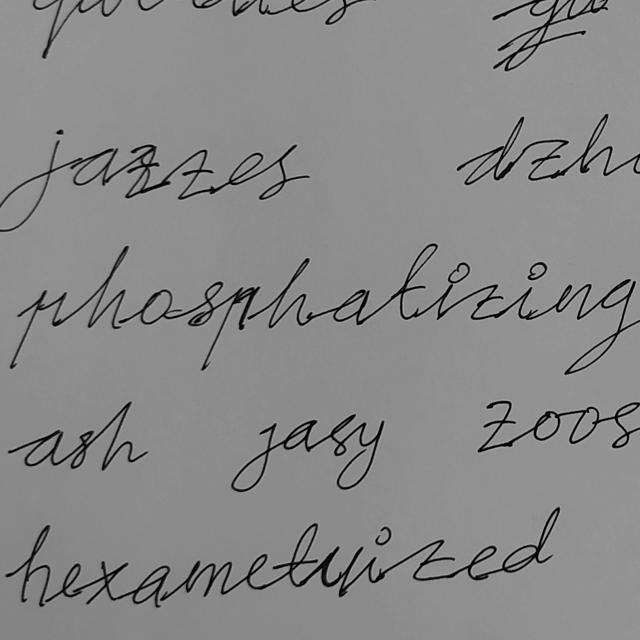 jazzes
phosphatizing
ash jasy zoos
hexametrized